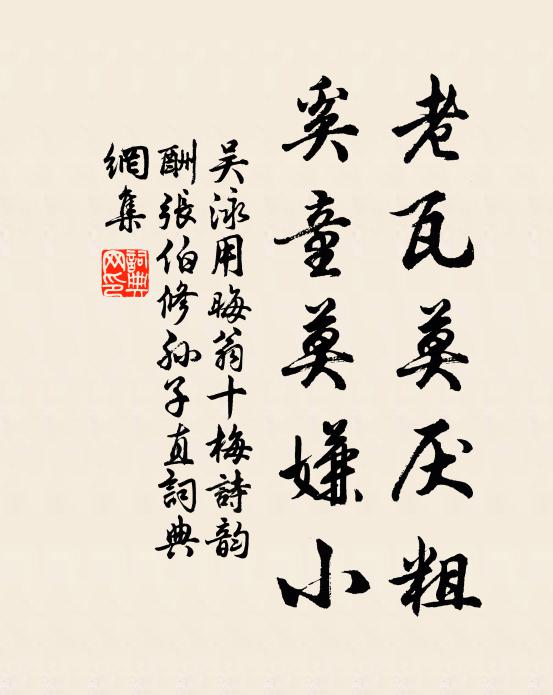 老瓦莫厌粗
奚童莫嫌小
吴泳用晦翁十梅詩韵
酬張伯修孙子直詞典
網集
詞典网印